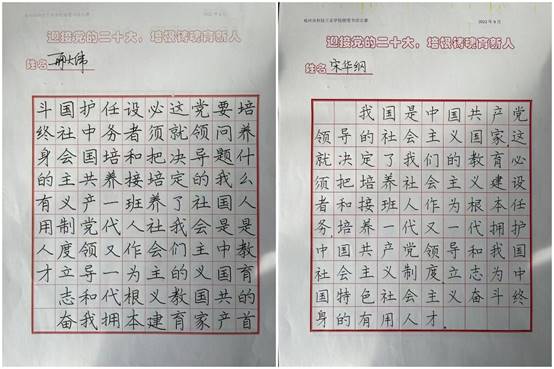 2022年9月
迎接党的二十大，培根铸魂育新人
姓名 邢大伟
培养什么人是教育的首
要问题我国是中国共产
党领导的社会主义国家
这就决定了我们的教育
必须把培养社会主义建
设者和接班人作为根本
任务培养一代又一代拥
护中国共产党领导和我
国社会主义制度立志奋
斗终身的有用人才
2022年9月
迎接党的二十大，培根铸魂育新人
姓名 宋华纲
我国是中国共产党
领导的社会主义国家,这
就决定了我们的教育必
须把培养社会主义建设
者和接班人作为根本任
务培养一代又一代拥护
中国共产党领导和我国
社会主义制度,立志为中
国特色社会主义奋斗终
身的有用人才.